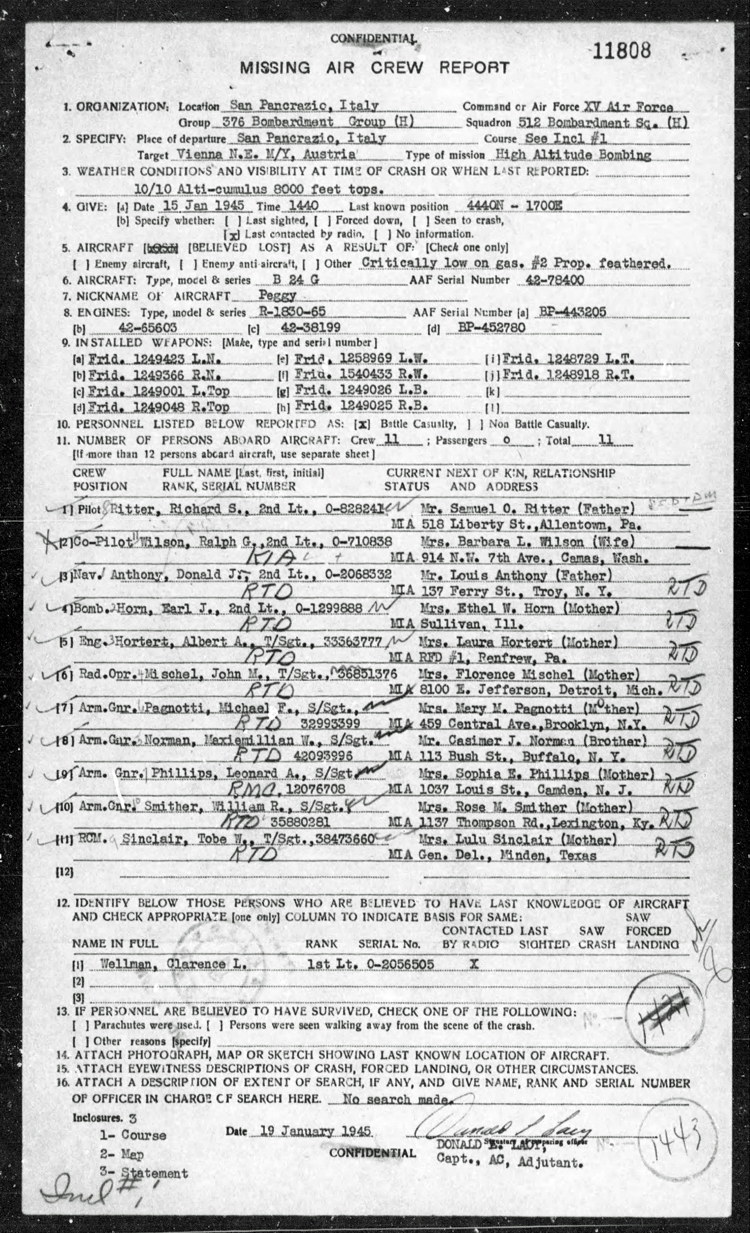 CONFIDENTIAL
11808
MISSING AIR CREW REPORT
1. ORGANIZATION: Location San Pancrazio, Italy Command or Air Force XV Air Force
Group 376 Bombardment Group (H) Squadron 512 Bombardment Sq. (H)
2. SPECIFY: Place of departure San Pancrazio, Italy Course See Incl #1
Target Vienna N.E. M/Y, Austria Type of mission High Altitude Bombing
3. WEATHER CONDITIONS AND VISIBILITY AT TIME OF CRASH OR WHEN LAST REPORTED:
10/10 Alti-cumulus 8000 feet tops.
4. GIVE: [a] Date 15 Jan 1945 Time 1440 Last known position 4440N - 1700E
[b] Specify whether: [ ] Last sighted, [ ] Forced down, [ ] Seen to crash,
[x] Last contacted by radio, [ ] No information.
5. AIRCRAFT [BELIEVED LOST] AS A RESULT OF: [Check one only]
[ ] Enemy aircraft, [ ] Enemy anti-aircraft, [ ] Other Critically low on gas. #2 Prop. feathered.
6. AIRCRAFT: Type, model & series B 24 G AAF Serial Number 42-78400
7. NICKNAME OF AIRCRAFT Peggy
8. ENGINES: Type, model & series R-1830-65 AAF Serial Number [a] BP-443205
[b] 42-65603 [c] 42-38199 [d] BP-452780
9. INSTALLED WEAPONS: [Make, type and serial number]
[a] Frid. 1249423 L.N. [e] Frid. 1258969 L.W. [i] Frid. 1248729 L.T.
[b] Frid. 1249366 R.N. [f] Frid. 1540433 R.W. [j] Frid. 1248918 R.T.
[c] Frid. 1249001 L.Top [g] Frid. 1249026 L.B. [k]
[d] Frid. 1249048 R.Top [h] Frid. 1249025 R.B. [l]
10. PERSONNEL LISTED BELOW REPORTED AS: [x] Battle Casualty, [ ] Non Battle Casualty.
11. NUMBER OF PERSONS ABOARD AIRCRAFT: Crew 11 ; Passengers 0 ; Total 11
[If more than 12 persons aboard aircraft, use separate sheet]
CREW FULL NAME [Last, first, initial] CURRENT NEXT OF KIN, RELATIONSHIP
POSITION RANK, SERIAL NUMBER STATUS AND ADDRESS
[1] Pilot Ritter, Richard S., 2nd Lt., 0-828241 Mr. Samuel O. Ritter (Father)
MIA 518 Liberty St., Allentown, Pa.
[2] Co-Pilot Wilson, Ralph G., 2nd Lt., 0-710838 Mrs. Barbara L. Wilson (Wife)
KIA MIA 914 N.W. 7th Ave., Camas, Wash.
[3] Nav. Anthony, Donald J., 2nd Lt., 0-2068332 Mr. Louis Anthony (Father)
RTD MIA 137 Ferry St., Troy, N. Y. RTD
[4] Bomb. Horn, Earl J., 2nd Lt., 0-1299888 Mrs. Ethel W. Horn (Mother)
RTD MIA Sullivan, Ill. RTD
[5] Eng. Hortert, Albert A., T/Sgt., 33363777 Mrs. Laura Hortert (Mother)
RTD MIA RFD #1, Renfrew, Pa. RTD
[6] Rad.Opr. Mischel, John M., T/Sgt., 36851376 Mrs. Florence Mischel (Mother)
RTD MIA 8100 E. Jefferson, Detroit, Mich. RTD
[7] Arm.Gnr. Pagnotti, Michael F., S/Sgt., Mrs. Mary M. Pagnotti (Mother)
RTD 32993399 MIA 459 Central Ave., Brooklyn, N.Y. RTD
[8] Arm.Gnr. Norman, Maxiemillian W., S/Sgt. Mr. Casimer J. Norman (Brother)
RTD 42093996 MIA 113 Bush St., Buffalo, N. Y. RTD
[9] Arm. Gnr. Phillips, Leonard A., S/Sgt. Mrs. Sophia E. Phillips (Mother)
RMC 12076708 MIA 1037 Louis St., Camden, N. J.
[10] Arm.Gnr. Smither, William R., S/Sgt. Mrs. Rose M. Smither (Mother)
RTD 35880281 MIA 1137 Thompson Rd., Lexington, Ky. RTD
[11] RCM. Sinclair, Tobe W., T/Sgt., 38473660 Mrs. Lulu Sinclair (Mother)
RTD MIA Gen. Del., Minden, Texas RTD
[12]
12. IDENTIFY BELOW THOSE PERSONS WHO ARE BELIEVED TO HAVE LAST KNOWLEDGE OF AIRCRAFT
AND CHECK APPROPRIATE [one only] COLUMN TO INDICATE BASIS FOR SAME: SAW
CONTACTED LAST SAW FORCED
NAME IN FULL RANK SERIAL No. BY RADIO SIGHTED CRASH LANDING
[1] Wellman, Clarence L. 1st Lt. 0-2056505 X
[2]
[3]
13. IF PERSONNEL ARE BELIEVED TO HAVE SURVIVED, CHECK ONE OF THE FOLLOWING:
[ ] Parachutes were used. [ ] Persons were seen walking away from the scene of the crash.
[ ] Other reasons [specify]
14. ATTACH PHOTOGRAPH, MAP OR SKETCH SHOWING LAST KNOWN LOCATION OF AIRCRAFT.
15. ATTACH EYEWITNESS DESCRIPTIONS OF CRASH, FORCED LANDING, OR OTHER CIRCUMSTANCES.
16. ATTACH A DESCRIPTION OF EXTENT OF SEARCH, IF ANY, AND GIVE NAME, RANK AND SERIAL NUMBER
OF OFFICER IN CHARGE OF SEARCH HERE. No search made.
Inclosures. 3
1- Course Date 19 January 1945
2- Map CONFIDENTIAL DONALD E. LACY,
3- Statement Capt., AC, Adjutant.
1443
Incl #1